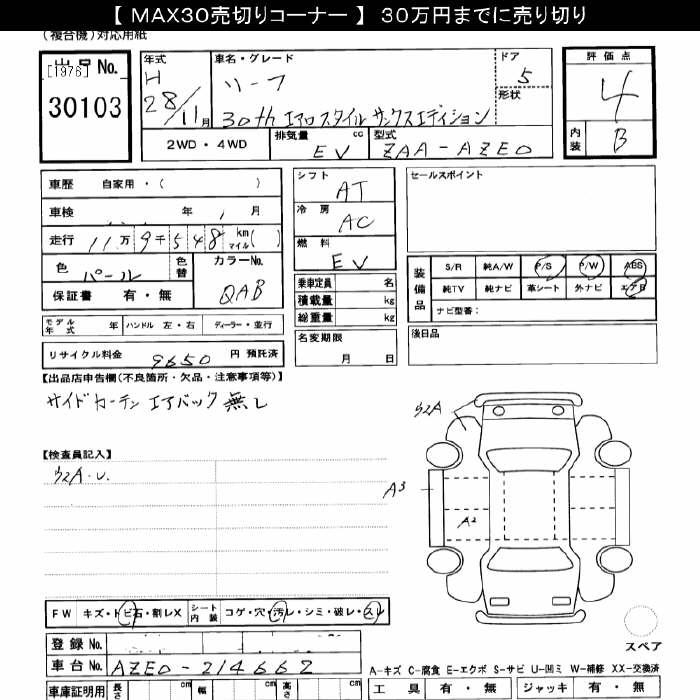 【 MAX30売切りコーナー 】 30万円までに売り切り
(複合機)対応用紙
出品No.
[1976]
30103
年式
H
28/11月
車名・グレード
リーフ
30th エアロスタイル サンクスエディション
ドア
5
形状
評価点
4
内装
B
2WD・4WD
排気量 cc
EV
型式
ZAA-AZE0
車歴 自家用・( )
車検 年 月
走行 11万9千548 km マイル( )
色
パール
色替
カラーNo.
QAB
保証書 有・無
シフト
AT
冷房
AC
燃料
EV
乗車定員 名
積載量 kg
総重量 kg
名変期限
月 日
セールスポイント
装備品
S/R 純A/W P/S P/W ABS
純TV 純ナビ 革シート 外ナビ エアB
ナビ型番:
後日品
モデル年式 年 ハンドル 左・右 ディーラー・並行
リサイクル料金 9650 円 預託済
【出品店申告欄(不良箇所・欠品・注意事項等)】
サイドカーテン エアバック 無し
【検査員記入】
A・U.
A
A3
A2
FW キズ・トビ石・割レX シート内装 コゲ・穴・汚レ・シミ・破レ・スレ
登録No.
車台No. AZE0-214662
車庫証明用 長さ cm 幅 cm 高さ cm
スペア
A-キズ C-腐食 E-エクボ S-サビ U-凹ミ W-補修 XX-交換済
工具 有・無 ジャッキ 有・無